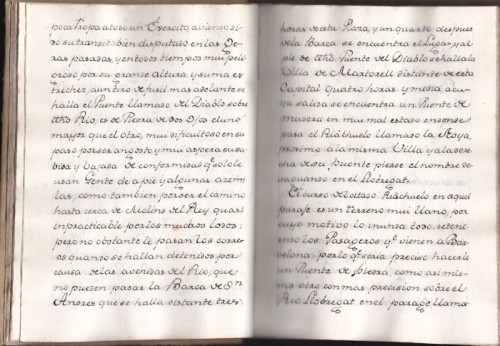 poca tropa a todo un Exercito, aviendo si-
do su transito bien disputado en las Ge-
ras pasadas, y en todos tiempos mui peli-
groso por su grande altura, y suma es-
trechez, a un tiro de fusil mas adelante se
halla el Puente llamado del Diablo sobre
dtho. Rio, es de Piedra de dos Ojos el uno
mayor que el otro, mui dificultoso en su
paso por ser angosto, y mui aspera su su-
bida y baxada de conformidad qe. solo le
usan Gente de a pie y algunas azemi-
las, como tambien por ser el camino
hasta cerca de Molins del Rey quasi
impracticable por los muchos lodos;
pero no obstante le pasan los corre-
os quando se hallan detenidos por
causa de las avenidas del Rio, que
no pueden pasar la Barca de Sn.
Andres que se halla distante tres
horas de esta Plaza, y un quarto despues
de la Barca se encuentra el Lugar, y al
pie de dtho. Puente del Diablo se halla la
Villa de Martorell distante de esta
Capital quatro horas y media, a cu-
ya salida se encuentra un Puente de
madera en mui mal estado en donde
pasa el Riachuelo llamado la Noya,
proximo a la misma Villa y a la dere-
cha de su puente pierde el nombre de-
saguando en el Llobregat.
El curso de citado Riachuelo en aquel
paraje es un terreno mui llano, por
cuyo motivo lo inunda todo, y detie-
nen los Pasageros qe. vienen a Bar-
celona; por lo qe. seria preciso hacerle
un Puente de piedra, como asi mis-
mo otro con mas precision sobre el
Rio Llobregat en el parage llama-